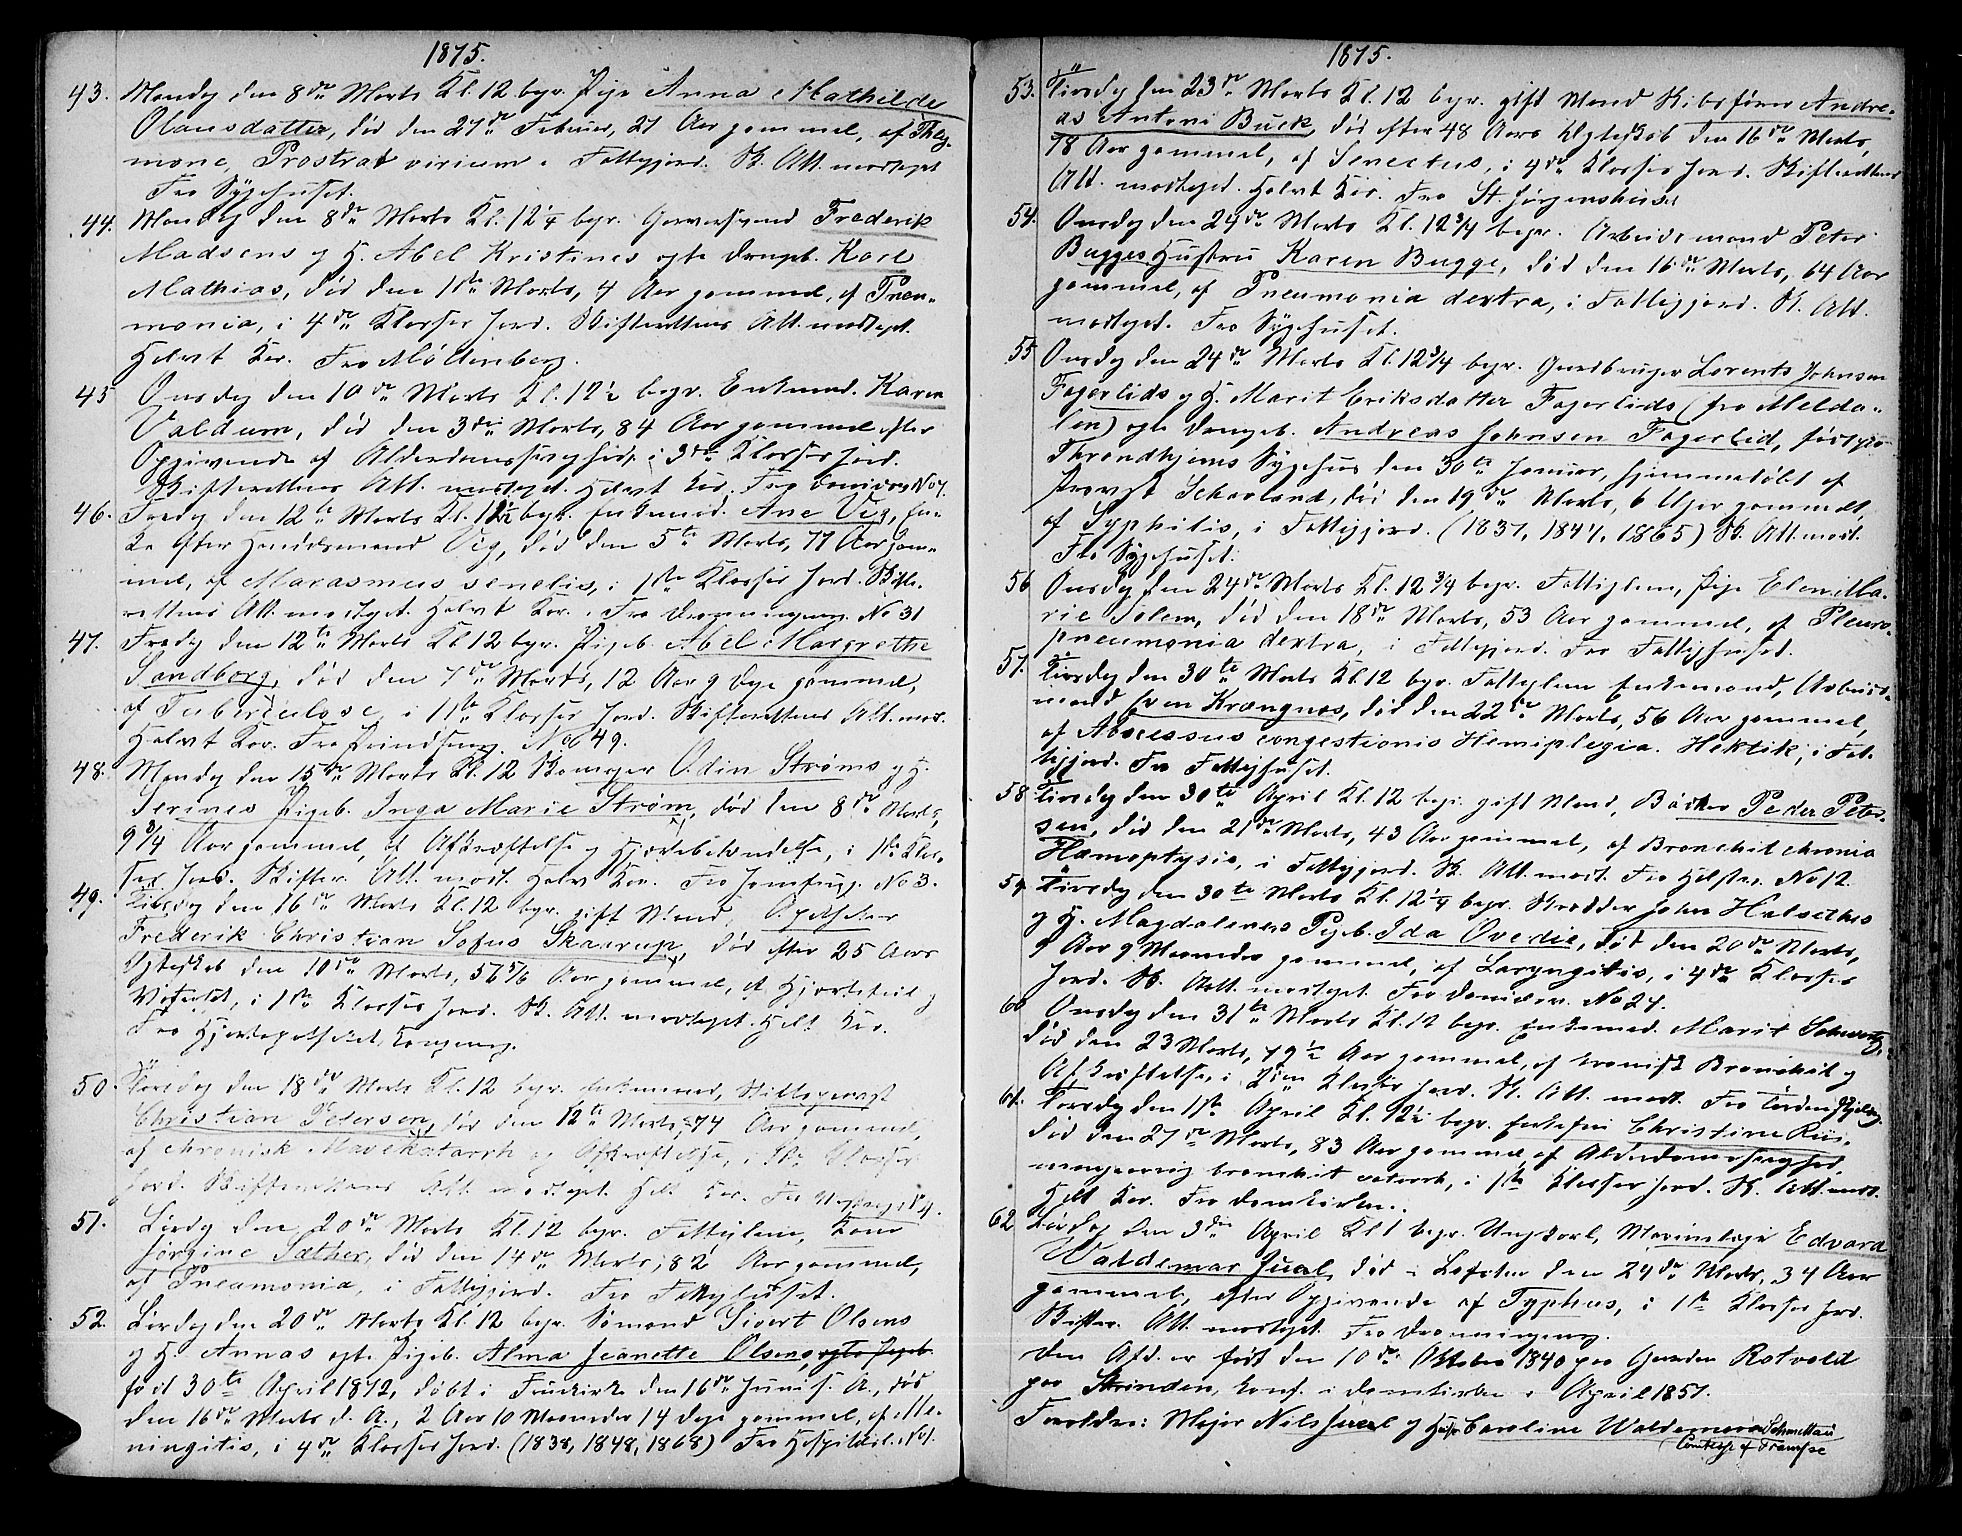 1875.
43. Mandag den 8de Marts Kl. 12 begr. Pige Anna Mathilde
Olausdatter, død den 27de Februar, 21 Aar gammel, af Phleg-
mone, Prostrat virium i Fattigjord. Sk. Att. modtaget
Fra Sygehuset.
44. Mandag den 8de Marts Kl. 12¼ begr. Garversvend Frederik
Madsens og H. Abel Kristines egte Drengeb. Karl
Mathias, død den 1ste Marts, 4 Aar gammel, af Pneu-
monia, i 4de Klasses Jord. Skifterettens Att. modtaget.
Halvt Kor. Fra Møllenberg.
45 Onsdag den 10de Marts Kl. 12½ begr. Enkemd. Karen
Valdum, død den 3die Marts, 84 Aar gammel efter
Opgivende af Alderdomssvaghed, i 3die Klasses Jord.
Skifterettens Att. modtaget. Halvt Kor. Fra
46. Fredag den 12te Marts Kl. 12½ begr. Enkemd. Ane Vig, En-
ke efter Handelsmand Vig, død den 5te Marts, 77 Aar gam-
mel, af Marasmus senelis, i 1ste Klasses Jord. Skifte-
rettens Att. modtaget. Halvt Kor. Fra Dronningensg. No 31
47. Fredag den 12te Marts Kl. 12 begr. Pigeb. Abel Margrethe
Sandborg, død den 7de Marts, 12 Aar 9 Dage gammel,
af Tuberculose i 1ste Klasses Jord. Skifterettens Att. mod.
Halvt Kor. Fra Prindsensg. No 49.
48. Mandag den 15de Marts Kl. 12 Odin Strøms og H.
Serines Pigeb. Inga Marie Strøm, død den 8de Marts,
9¾ Aar gammel, af Afkræftelse og Hjertebetændelse, i 1ste Klas-
ses Jord. Skifter. Att. modt. Halv Kor. Fra Jomfrug. No 3.
49. Tirsdag den 16de Marts Kl. 12 begr. gift Mand, Apotheker
Frederik Christian Sofus Skaarup, død efter 25 Aars
Egteskab den 10de Marts, 56 5/6 Aar gammel, af Hjertefeil og
i 1ste Klasses Jord. Sk. Att. modtaget. Helt Kor.
Fra Hjorteapotheket, Kongensg.
50. Torsdag den 18de Marts Kl. 12 begr. Enkemand,
Christian Petersen, død den 12te Marts, 74 Aar gammel,
af chronisk Mavekatarrh og Afkræftelse, i 1ste Klasses
Jord. Skifterettens Att. modtaget. Helt Kor. Fra
51. Lørdag den 20de Marts Kl. 12 begr. Fattiglem, Kone
Jørgine Sæther, død den 14de Marts, 82 Aar gammel,
af Pneamonia, i Fattigjord. Fra Fattighuset.
52. Lørdag den 20de Marts Kl. 12 begr. Sømand Sivert Olsens
og H. Annas egte Pigeb. Alma Jeanette Olsens, egte Pigeb.
født 30te April 1872, døbt i Fruekirke den 16de Juni s. A., død
den 16de Marts d. A., 2 Aar 10 Maaneder 14 Dage gammel, af Me-
ningitis, i 4de Klasses Jord. (1838, 1848, 1868) Fra Hospitalsl. No 1.
1875.
53. Tirsdag den 23de Marts Kl. 12 begr. gift Mand Skibsfører Andre-
as Antoni Buck, død efter 48 Aars Egteskab den 16de Marts,
78 Aar gammel, af Senectus, i 4de Klasses Jord. Skifterettens
Att. modtaget. Halvt Kor. Fra St. Jørgenshuset
54. Onsdag den 24de Marts Kl. 12¾ begr. Arbeidsmand Peter
Bugges Hustru Karen Bugge, død den 16de Marts, 64 Aar
gammel, af Pneumonia dextra, i Fattigjord. Sk. Att.
modtaget. Fra Sygehuset.
55 Onsdag den 24de Marts Kl. 12¾ begr. Gaardbruger Lorents Johnsen
Fagerlids og H. Marit Eriksdatter Fagerlids (fra Melda-
len) egte Drengeb. Andreas Johnsen Fagerlid, født paa
Throndhjems Sygehus den 30te Januar, hjemmedøbt af
Provst Schavland, død den 19de Marts, 6 Uger gammel,
af Syphilis, i Fattigjord. (1837, 1847, 1865) Sk. Att. modt.
Fra Sygehuset.
56 Onsdag den 24de Marts Kl. 12¾ begr. Fattiglem, Pige Elen Ma-
rie Solem, død den 18de Marts, 53 Aar gammel, af Pleuro-
pneumonia dextra, i Fattigjord. Fra Fattighuset.
57. Tirsdag den 30te Marts Kl. 12 begr. Fattiglem Enkemand, Arbeids-
mand Even Krangnæs, død den 22de Marts, 56 Aar gammel,
af Abscessus congestionis Hemiplegia. Hektik, i Fat-
tigjord. Fra Fattighuset.
58 Tirsdag den 30te April Kl. 12 begr. gift Mand, Bødker Peder Peter-
sen, død den 21de Marts, 43 Aar gammel, af Bronchit chronia
Hæmoptysis, i Fattigjord. Sk. Att. modt. Fra No 12.
59 Tirsdag den 30te Marts Kl. 12¼ begr. Skrædder John Halsethes
og H. Magdalenes Pigeb. Ida Ovedie, død den 20de Marts,
9 Maaneder gammel, af Laryngitis, i 4de Klasses
Jord. Sk. Att. modtaget. Fra No 24.
60 Onsdag den 31te Marts Kl. 12 begr. Enkemd. Marit Schwartz,
død den 23 Marts, 79½ Aar gammel, af kronisk Bronchit og
Afkræftelse, i 2den Klasses Jord. Sk. Att. modt. Fra
61. Torsdag den 1ste April Kl. 12½ begr. Enkefru Christine Riis,
død den 27de Marts, 83 Aar gammel af Alderdomssvaghed,
bronchit catarrh, i 1ste Klasses Jord. Sk. Att. modt.
Helt Kor. Fra Domkirken.
62 Lørdag den 3die April Kl 1 begr. Ungkarl, Marinelæge Edvard
Valdemar Juel, død i Lofoten den 24de Marts, 34 Aar
gammel, efter Opgivende af Typhus, i 1ste Klasses Jord.
Skifter. Att. modtaget. Fra Dronningensg.
Den Afd. er født den 10de Oktober 1840 paa Gaarden Rotvold
paa Strinden, konf. i Domkirken i April 1857.
Forældre: Major Nils Juel og Hustru Caroline Waldemare Schmettau
Comtesse af